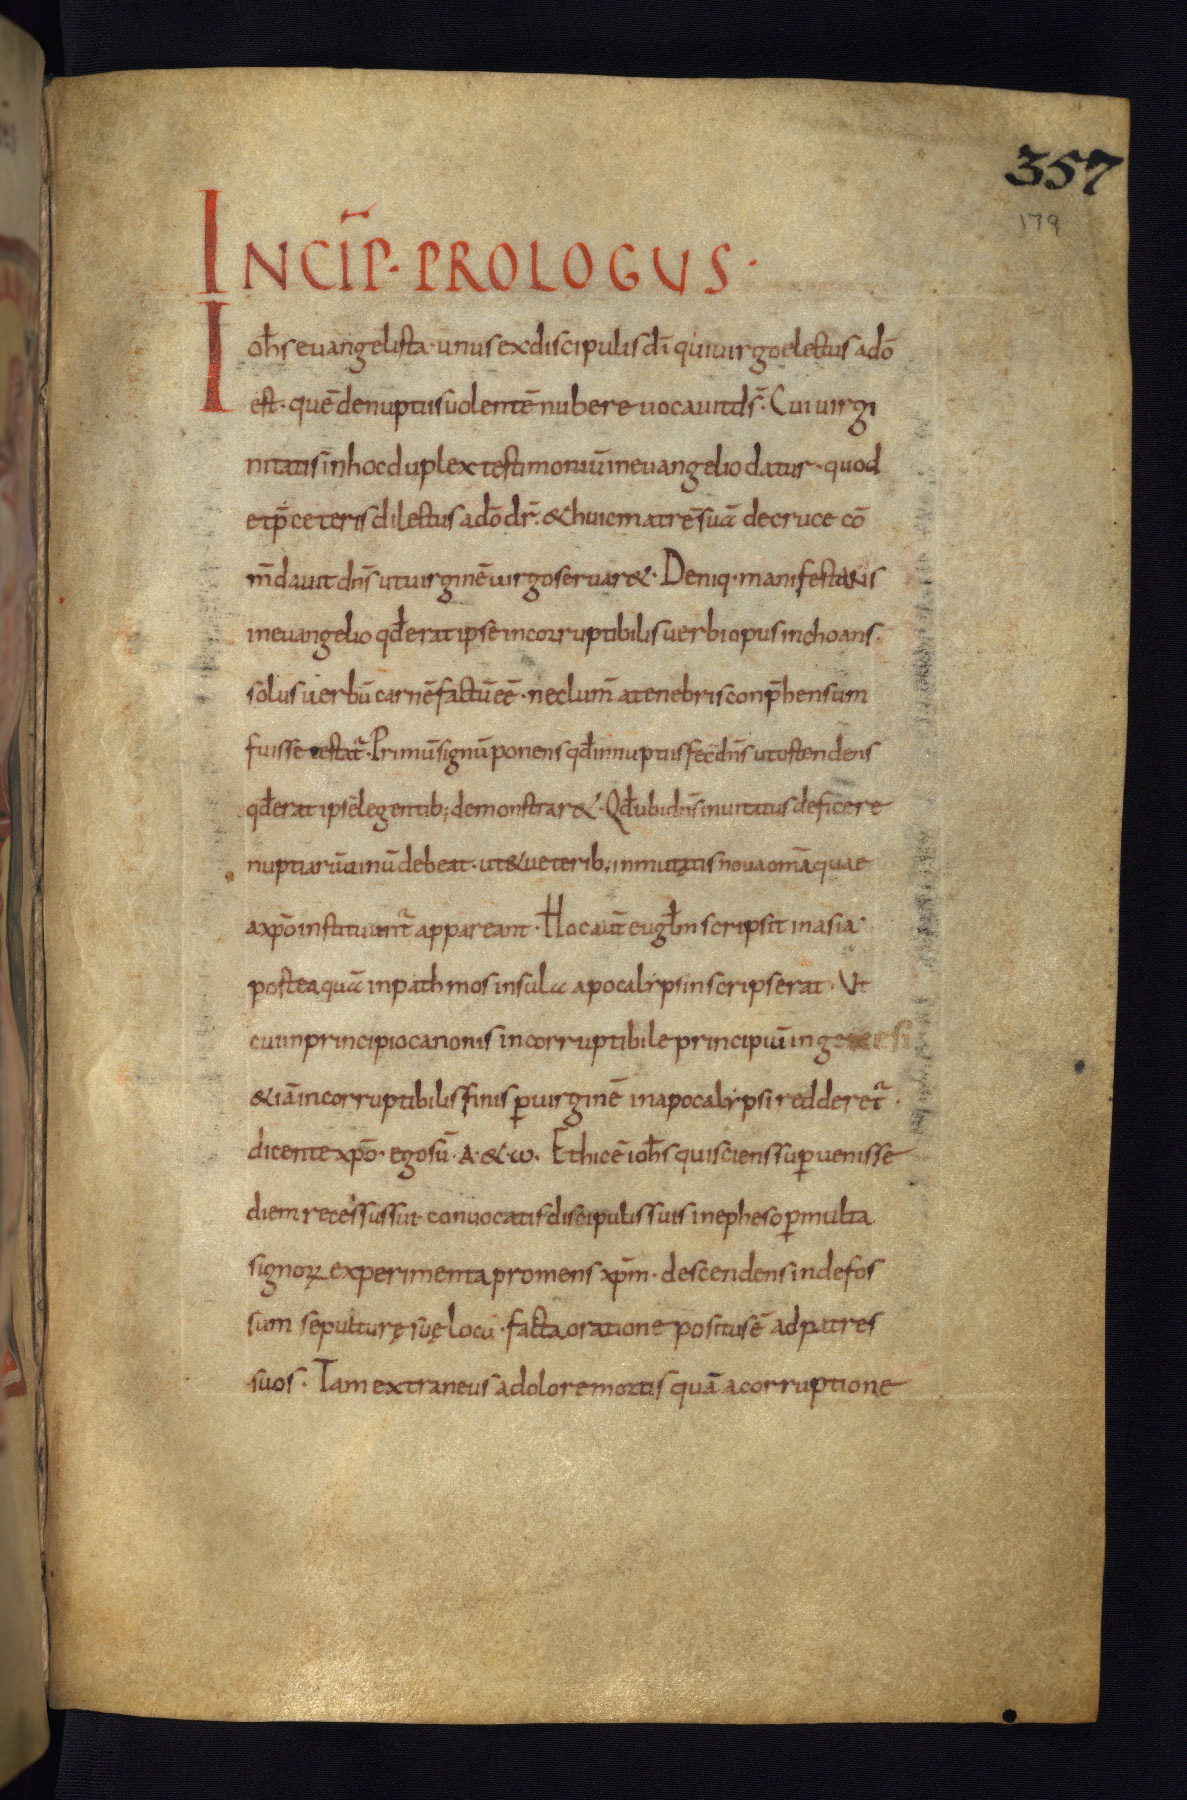 357
179
INCIP̄· PROLOGUS·
Ioh̄s evangelista· unus ex discipulis dī qui virgo electus adō
est· quē de nuptiis volentē nubere vocavit ds̄· Cui virgi
nitatis in hoc duplex testimoniū in evangelio datur· quod
et p̄ ceteris dilectus adō dr̄· & huic matrē suā de cruce cō
m̄davit dn̄s ut virginē virgo servar&· Deniq· manifestans
in evangelio qđ erat ipse incorruptibilis verbi opus inchoans·
solus verbū carnē factū eē· nec lum̄ a tenebris conp̄hensum
fuisse testat̄· Primū signū ponens qđ in nuptiis fec̄ dn̄s ut ostendens
qđ erat ipse legentib; demonstrar&· Qđ ubi dn̄s invitatus deficere
nuptiarū vinū debeat· ut & veterib; inmutatis nova om̄a quae
a xp̄o instituunt̄ appareant· Hoc aut̄ evgl̄m scripsit in asia
postea quā in pathmos insula apocalypsin scripserat· Ut
cui in principio canonis incorruptibile principiū in genesi
& iā incorruptibilis finis p̱ virginē in apocalypsi redderet̄·
dicente xp̄o· ego sū· A· &· ω· Et hic ē ioh̄s qui sciens sup̱venisse
diem recessus sui· convocatis discipulis suis in epheso p̱ multa
signoꝝ experimenta promens xp̄m· descendens in defos
sum sepulturę suę locū· facta oratione positus ē ad patres
suos· Tam extraneus a dolore mortis quā a corruptione